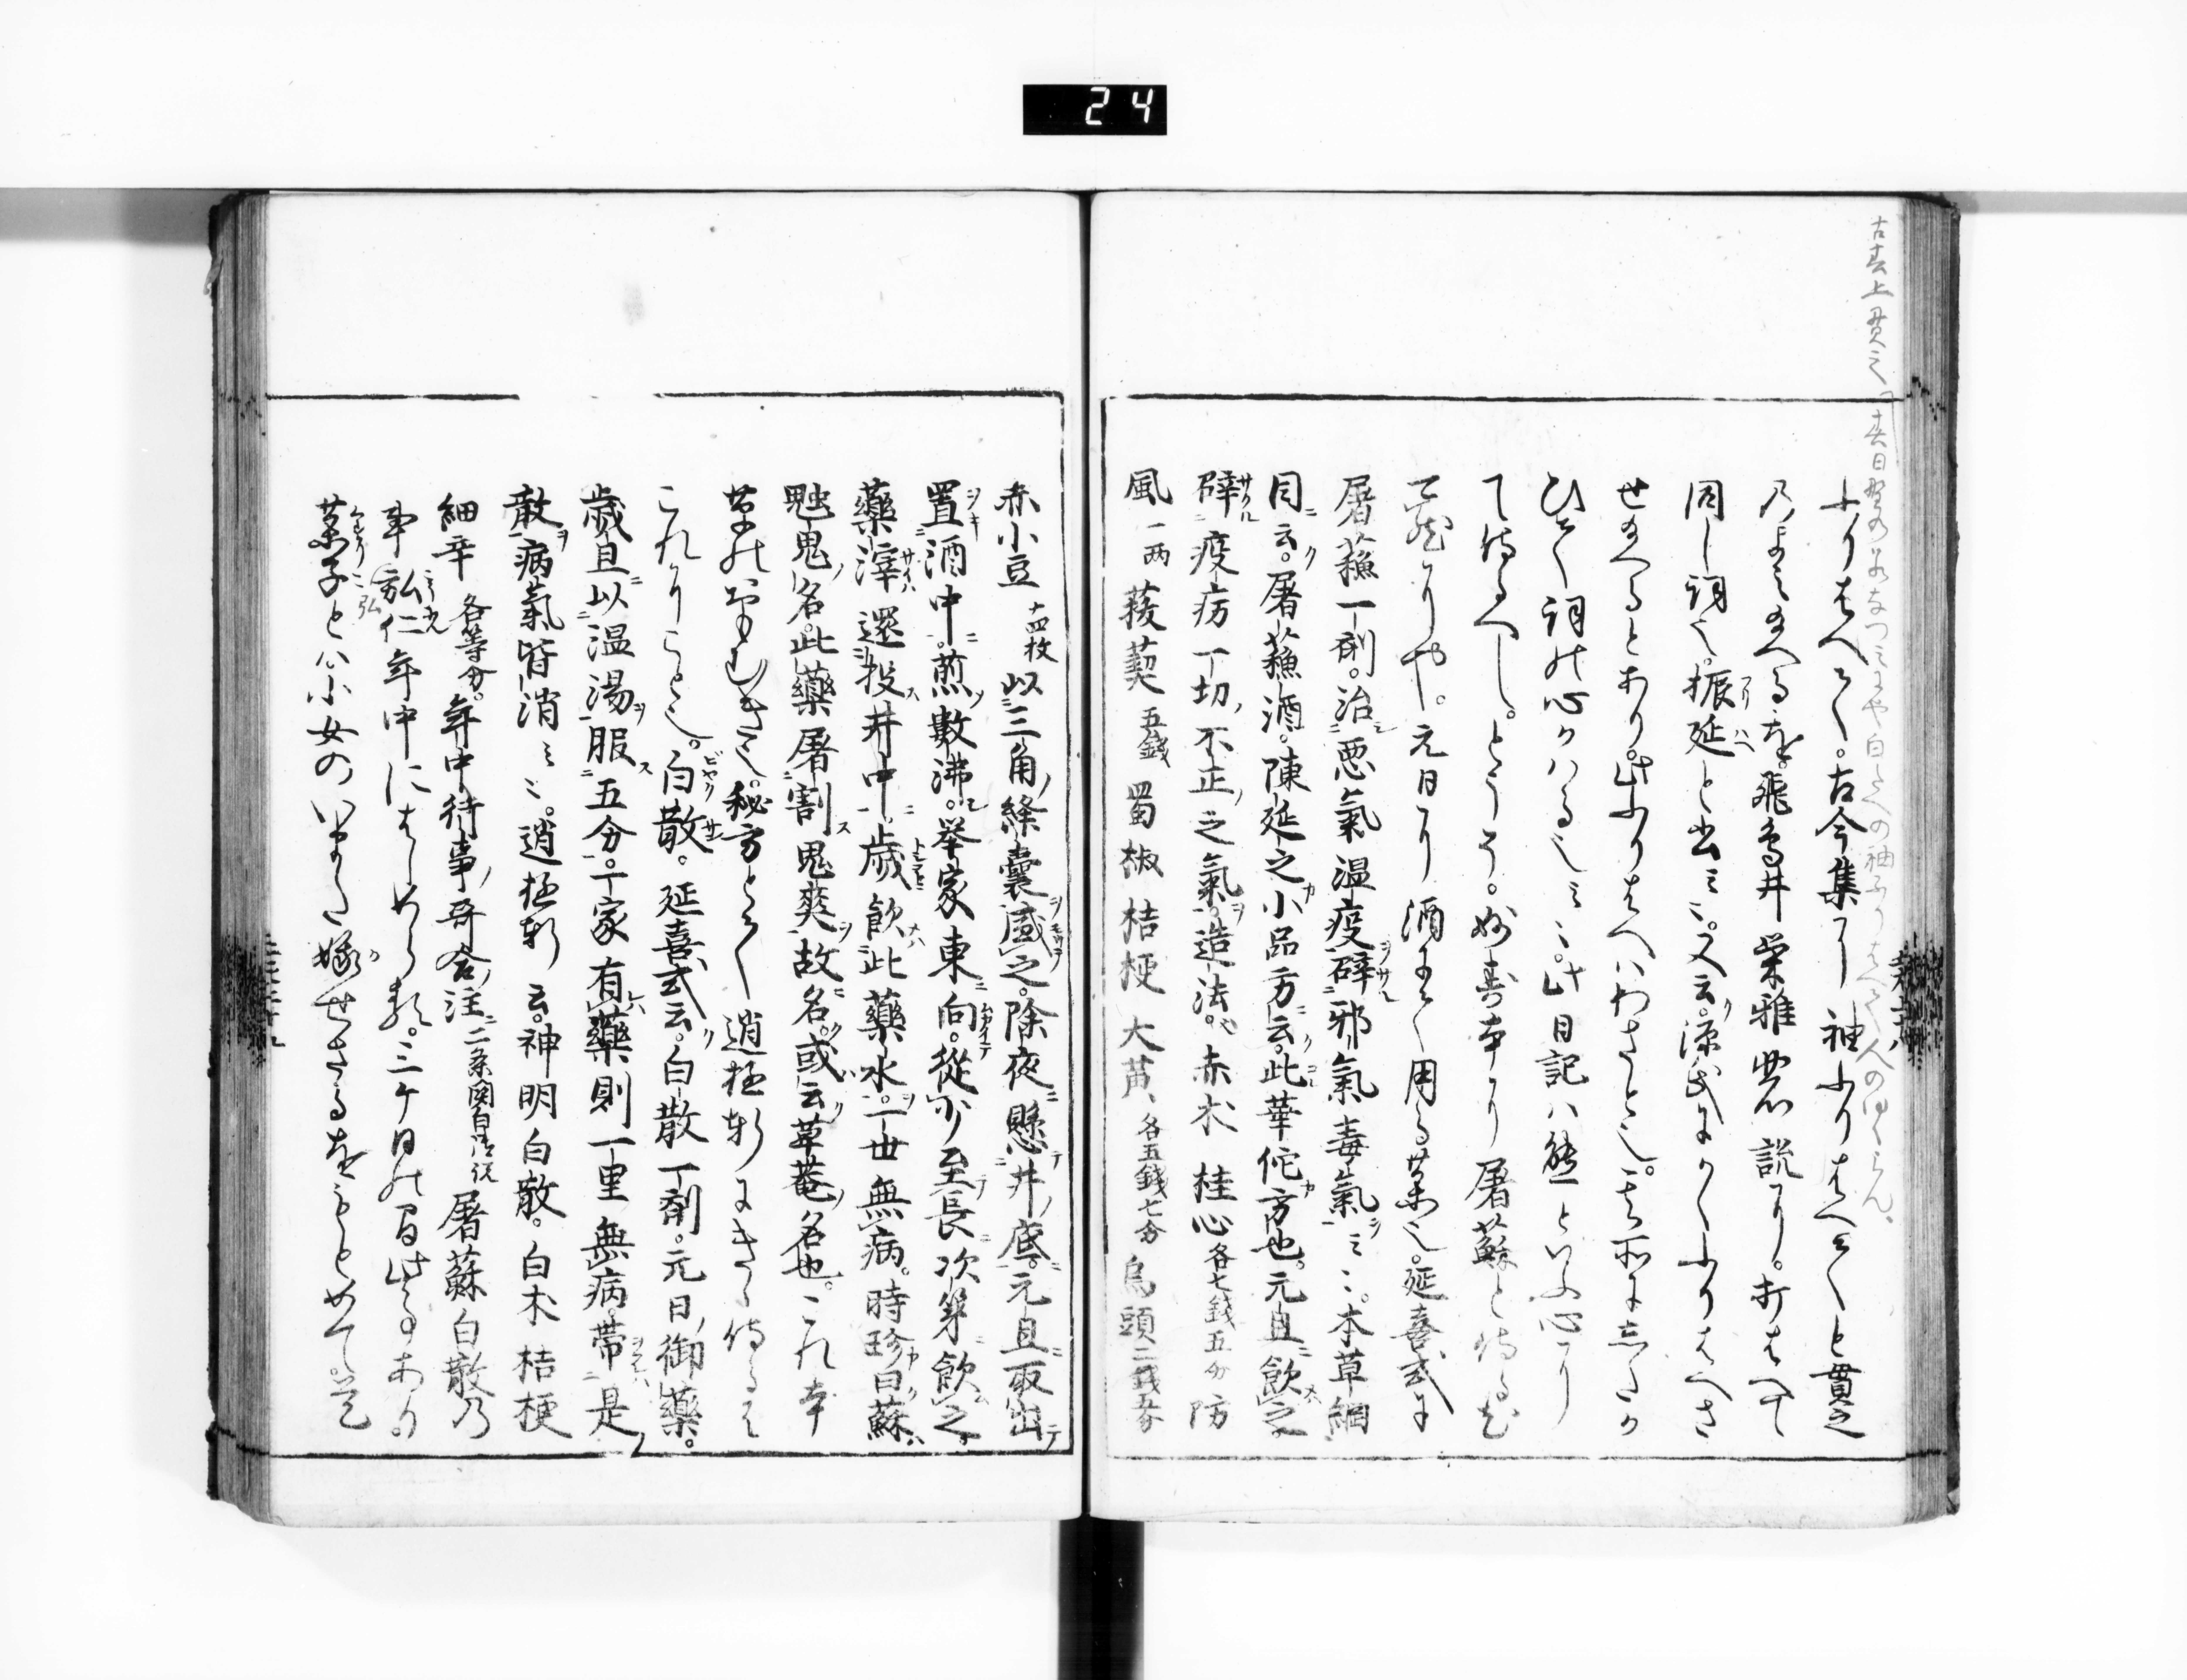 24
古春上貫之「春日野のわかなつみにや白たへの袖ふりはへて人のゆくらん
ふりはへて。古今集に袖ふりはへてと貫之
のよみ給へるを。飛鳥井栄雅の説に。打はへて
同し詞也。振延と書云々。又云。源氏にかくふりはへさ
せ給へるとあり。此ふりはへはわさと也。
ひて詞の心かはる也云々。此日記は態といふ心なり
て侍るへし。とうそ。妙寿本に屠蘇と侍る
元日に酒にて用る薬也。延喜式に
屠蘇一剤。治悪氣温疫辟邪氣毒氣云々。本草綱
目云。屠蘇酒。陳延之小品方云。此華佗方也。元旦飲之。
辟疫癘一切不正之氣。造法。赤朮 桂心各七銭五分 防
風一両 菝葜五銭 蜀椒 桔梗 大黄各五銭七分 烏頭二銭五分
赤小豆十四枚 以三角絳嚢盛之。除夜懸井底。元旦取出
置酒中。煎數沸。挙家東向。從少至長次第飲之。
薬滓還投井中。歳飲此藥水。一世無病。時珍曰蘇
魑鬼名。此藥屠割鬼爽故名。或云草菴名也。これ本
草のおもむき也。秘方とて逍遥軒にきゝ侍るは
これなりこと也。白散。延喜式云。白散一剤。元日御薬。
歳旦以温湯服五分。一家有藥則一里無病。帯是
散病氣皆消云々。逍遥軒云。神明白散。白朮 桔梗
細辛各等分。年中行事哥合注二条関白御説 屠蘇白散乃
事弘仁年中にはしめらる。三ケ日の間此事あり。
薬子とは小女のいまた嫁せさるをもとめて。是